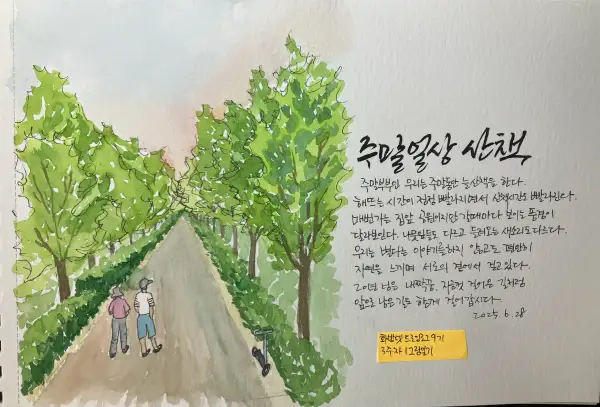 주말일상 산책
주말부부인 우리는 주말동안 늘 산책을 한다.
해뜨는 시간이 점점 빨라지면서 산책시간도 빨라진다.
매번가는 집앞 공원이지만 갈때마다 보이는 풍경이
달라보인다. 나뭇잎들도 다르고 들려오는 새소리도 다르다.
우리는 별다른 이야기를하지 않고도 편안히
자연을 느끼며 서로의 곁에서 걷고있다.
20년된 남은 내짝꿍, 지금껏 걸어온 길처럼
앞으로 남은길도 함께 걸어갑시다.
2025. 6. 28
9기
3주차 / 그림일기